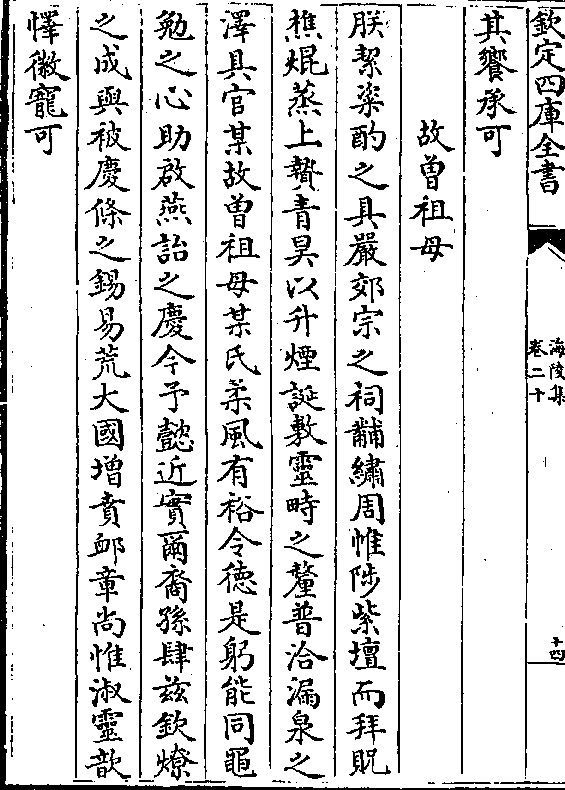 欽定四庫全書
海陵集
卷二十
十四
其饗承可
故曾祖母
朕絜粢酌之具嚴郊宗之祠黼繡周帷陟紫壇而拜貺
樵焜蒸上贄青昊以升煙誕敷靈畤之釐普洽漏泉之
澤具官某故曾祖母某氏柔風有裕令德是躬能同黽
勉之心助啟燕詒之慶今予懿近實爾裔孫肆兹欽燎
之成與被慶條之錫易荒大國增賁䘏章尚惟淑靈歆
懌徽寵可